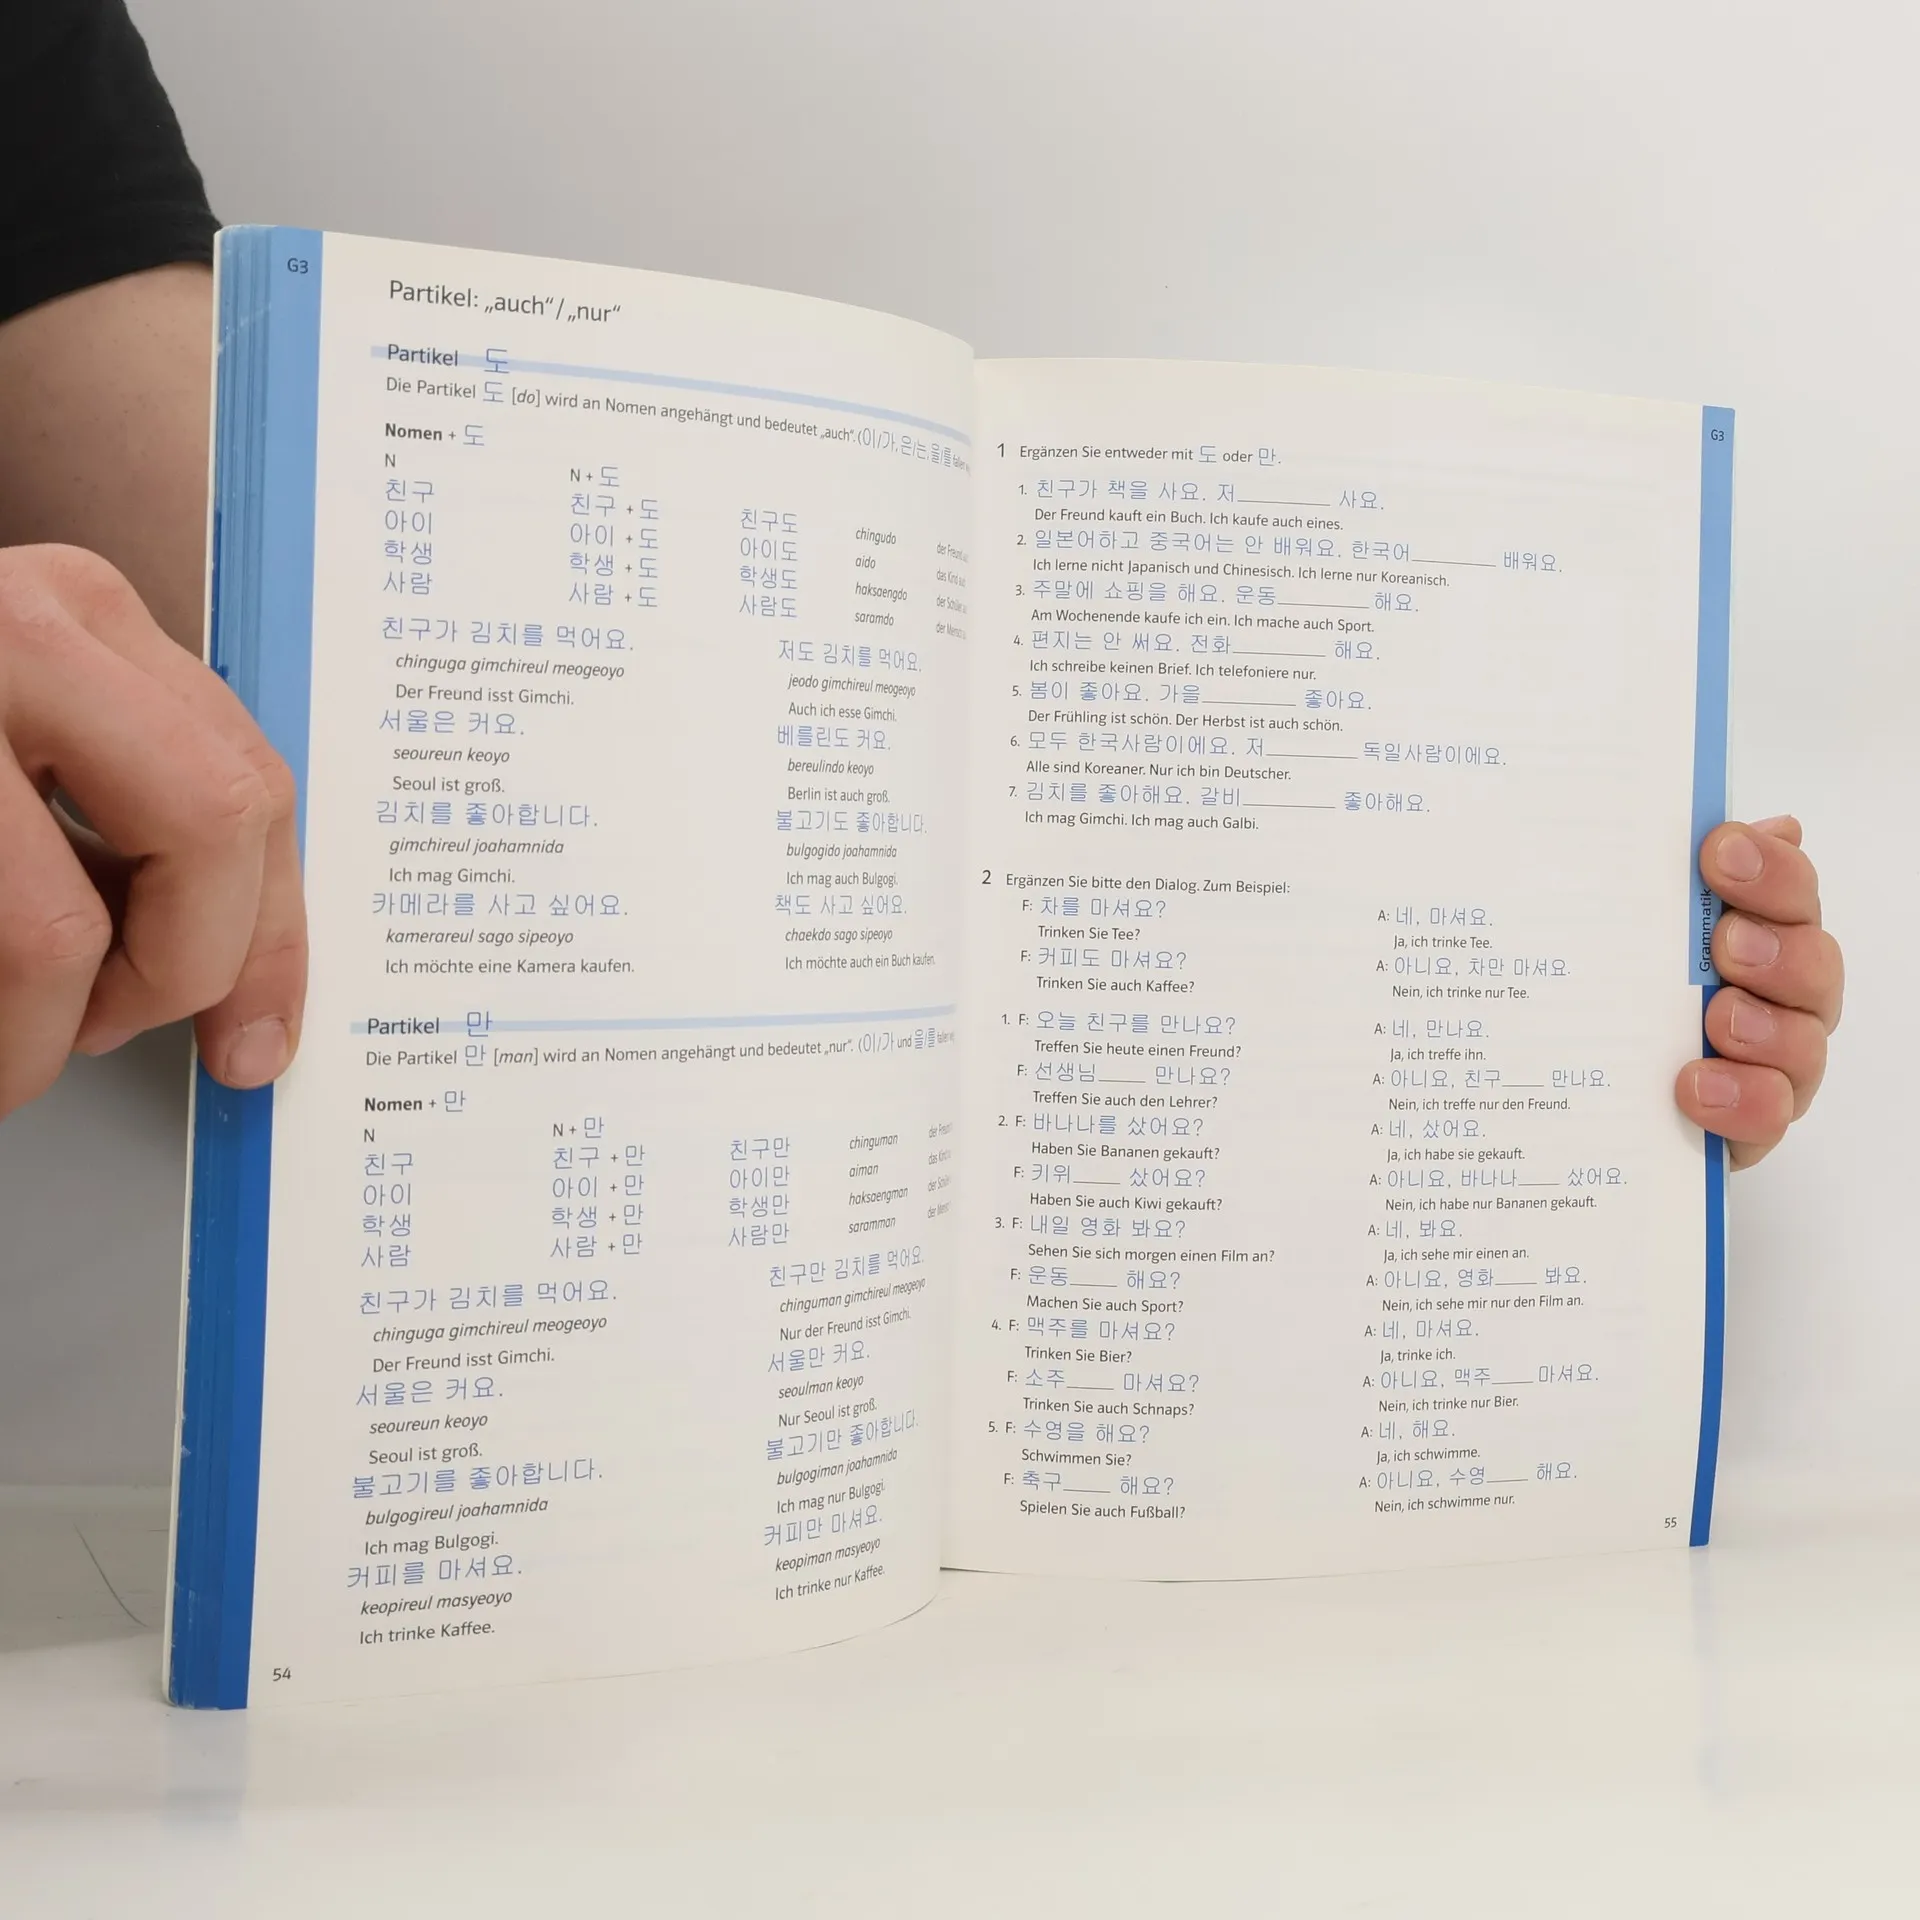 G3
Partikel: „auch“/„nur“
Partikel 도
Die Partikel 도 [do] wird an Nomen angehängt und bedeutet „auch“. (이/가, 은/는, 을/를
Nomen + 도
N N + 도
친구 친구 + 도 친구도 chingudo der Freund
아이 아이 + 도 아이도 aido das Kind
학생 학생 + 도 학생도 haksaengdo der Schüler
사람 사람 + 도 사람도 saramdo der Mensch
친구가 김치를 먹어요. 저도 김치를 먹어요.
chinguga gimchireul meogeoyo jeodo gimchireul meogeoyo
Der Freund isst Gimchi. Auch ich esse Gimchi.
서울은 커요. 베를린도 커요.
seoureun keoyo bereulindo keoyo
Seoul ist groß. Berlin ist auch groß.
김치를 좋아합니다. 불고기도 좋아합니다.
gimchireul joahamnida bulgogido joahamnida
Ich mag Gimchi. Ich mag auch Bulgogi.
카메라를 사고 싶어요. 책도 사고 싶어요.
kamerareul sago sipeoyo chaekdo sago sipeoyo
Ich möchte eine Kamera kaufen. Ich möchte auch ein Buch kaufen.
Partikel 만
Die Partikel 만 [man] wird an Nomen angehängt und bedeutet „nur“. (이/가 und 을/를
Nomen + 만
N N + 만
친구 친구 + 만 친구만 chinguman der
아이 아이 + 만 아이만 aiman das
학생 학생 + 만 학생만 haksaengman der
사람 사람 + 만 사람만 saramman der
친구가 김치를 먹어요. 친구만 김치를 먹어요.
chinguga gimchireul meogeoyo chinguman gimchireul meogeoyo
Der Freund isst Gimchi. Nur der Freund isst Gimchi.
서울은 커요. 서울만 커요.
seoureun keoyo seoulman keoyo
Seoul ist groß. Nur Seoul ist groß.
불고기를 좋아합니다. 불고기만 좋아합니다.
bulgogireul joahamnida bulgogiman joahamnida
Ich mag Bulgogi. Ich mag nur Bulgogi.
커피를 마셔요. 커피만 마셔요.
keopireul masyeoyo keopiman masyeoyo
Ich trinke Kaffee. Ich trinke nur Kaffee.
54
G3
1 Ergänzen Sie entweder mit 도 oder 만.
1. 친구가 책을 사요. 저_____ 사요.
Der Freund kauft ein Buch. Ich kaufe auch eines.
2. 일본어하고 중국어는 안 배워요. 한국어_____ 배워요.
Ich lerne nicht Japanisch und Chinesisch. Ich lerne nur Koreanisch.
3. 주말에 쇼핑을 해요. 운동_____ 해요.
Am Wochenende kaufe ich ein. Ich mache auch Sport.
4. 편지는 안 써요. 전화_____ 해요.
Ich schreibe keinen Brief. Ich telefoniere nur.
5. 봄이 좋아요. 가을_____ 좋아요.
Der Frühling ist schön. Der Herbst ist auch schön.
6. 모두 한국사람이에요. 저_____ 독일사람이에요.
Alle sind Koreaner. Nur ich bin Deutscher.
7. 김치를 좋아해요. 갈비_____ 좋아해요.
Ich mag Gimchi. Ich mag auch Galbi.
2 Ergänzen Sie bitte den Dialog. Zum Beispiel:
F: 차를 마셔요? A: 네, 마셔요.
Trinken Sie Tee? Ja, ich trinke Tee.
F: 커피도 마셔요? A: 아니요, 차만 마셔요.
Trinken Sie auch Kaffee? Nein, ich trinke nur Tee.
1. F: 오늘 친구를 만나요? A: 네, 만나요.
Treffen Sie heute einen Freund? Ja, ich treffe ihn.
F: 선생님____ 만나요? A: 아니요, 친구____ 만나요.
Treffen Sie auch den Lehrer? Nein, ich treffe nur den Freund.
2. F: 바나나를 샀어요? A: 네, 샀어요.
Haben Sie Bananen gekauft? Ja, ich habe sie gekauft.
F: 키위____ 샀어요? A: 아니요, 바나나____ 샀어요.
Haben Sie auch Kiwi gekauft? Nein, ich habe nur Bananen gekauft.
3. F: 내일 영화 봐요? A: 네, 봐요.
Sehen Sie sich morgen einen Film an? Ja, ich sehe mir einen an.
F: 운동____ 해요? A: 아니요, 영화____ 봐요.
Machen Sie auch Sport? Nein, ich sehe mir nur den Film an.
4. F: 맥주를 마셔요? A: 네, 마셔요.
Trinken Sie Bier? Ja, trinke ich.
F: 소주____ 마셔요? A: 아니요, 맥주____ 마셔요.
Trinken Sie auch Schnaps? Nein, ich trinke nur Bier.
5. F: 수영을 해요? A: 네, 해요.
Schwimmen Sie? Ja, ich schwimme.
F: 축구____ 해요? A: 아니요, 수영____ 해요.
Spielen Sie auch Fußball? Nein, ich schwimme nur.
Grammatik
55